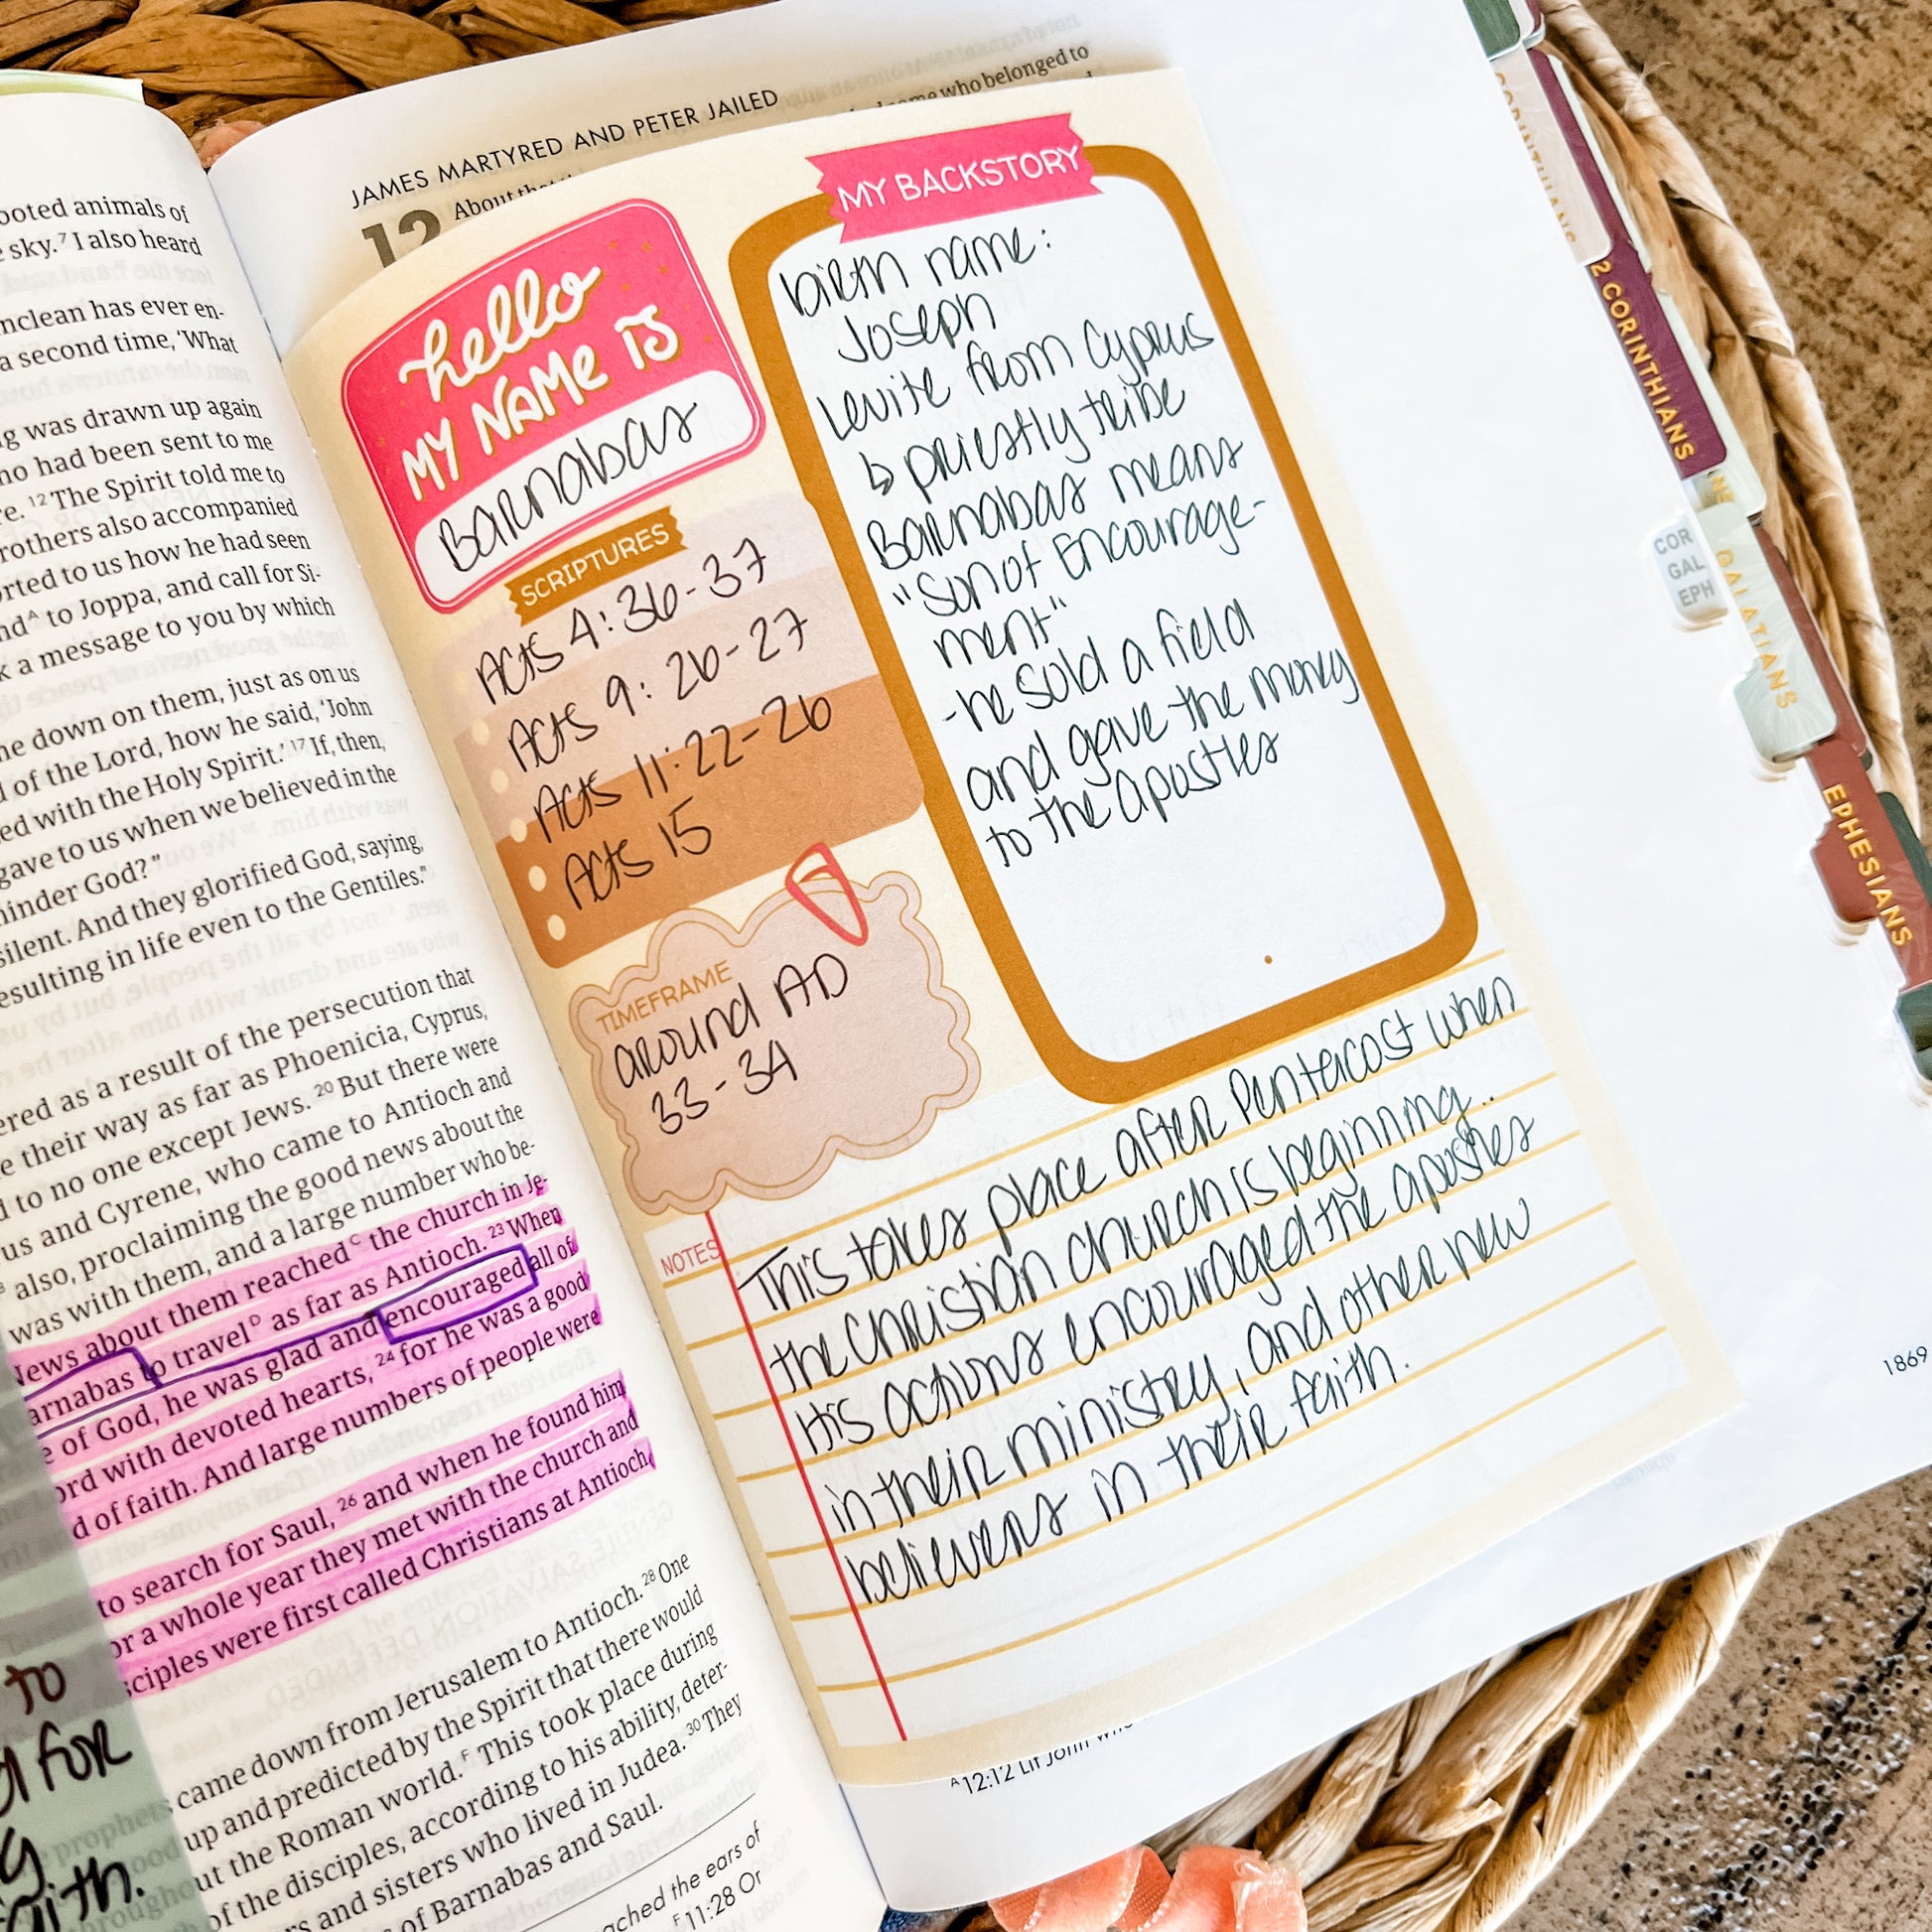 ooted animals of
sky.⁷ I also heard
nclean has ever en-
a second time, 'What
g was drawn up again
ho had been sent to me
re. ¹² The Spirit told me to
rothers also accompanied
orted to us how he had seen
nd^A to Joppa, and call for Si-
k a message to you by which
ne down on them, just as on us
d of the Lord, how he said, 'John
ed with the Holy Spirit.' ¹⁷ If, then,
gave to us when we believed in the
hinder God?"
silent. And they glorified God, saying,
esulting in life even to the Gentiles."
ered as a result of the persecution that
e their way as far as Phoenicia, Cyprus,
d to no one except Jews. ²⁰ But there were
us and Cyrene, who came to Antioch and
also, proclaiming the good news about the
was with them, and a large number who be-
News about them reached^C the church in Je-
arnabas to travel^D as far as Antioch. ²³ When
e of God, he was glad and encouraged all of
ord with devoted hearts, ²⁴ for he was a good
d of faith. And large numbers of people were
to search for Saul, ²⁶ and when he found him
or a whole year they met with the church and
sciples were first called Christians at Antioch.
came down from Jerusalem to Antioch. ²⁸ One
up and predicted by the Spirit that there would
out the Roman world.^F This took place during
of the disciples, according to his ability, deter-
rs and sisters who lived in Judea. ³⁰ They
of Barnabas and Saul.
ached the ears of
^F 11:28 Or
to
for
faith.
JAMES MARTYRED AND PETER JAILED
12 About
some who belonged to
hello
MY NAMe iS
Barnabas
SCRIPTURES
Acts 4:36-37
Acts 9:26-27
Acts 11:22-26
Acts 15
TIMEFRAME
around AD
33-34
MY BACKSTORY
birth name:
Joseph
Levite from Cyprus
↳ priestly tribe
Barnabas means
"Son of Encourage-
ment"
-he sold a field
and gave the money
to the apostles
NOTES
This takes place after Pentecost when
the Christian church is beginning..
His actions encouraged the apostles
in their ministry, and other new
believers in their faith.
^A 12:12 Lit John
1869
CORINTHIANS
2 CORINTHIANS
COR
GAL
EPH
GALATIANS
EPHESIANS